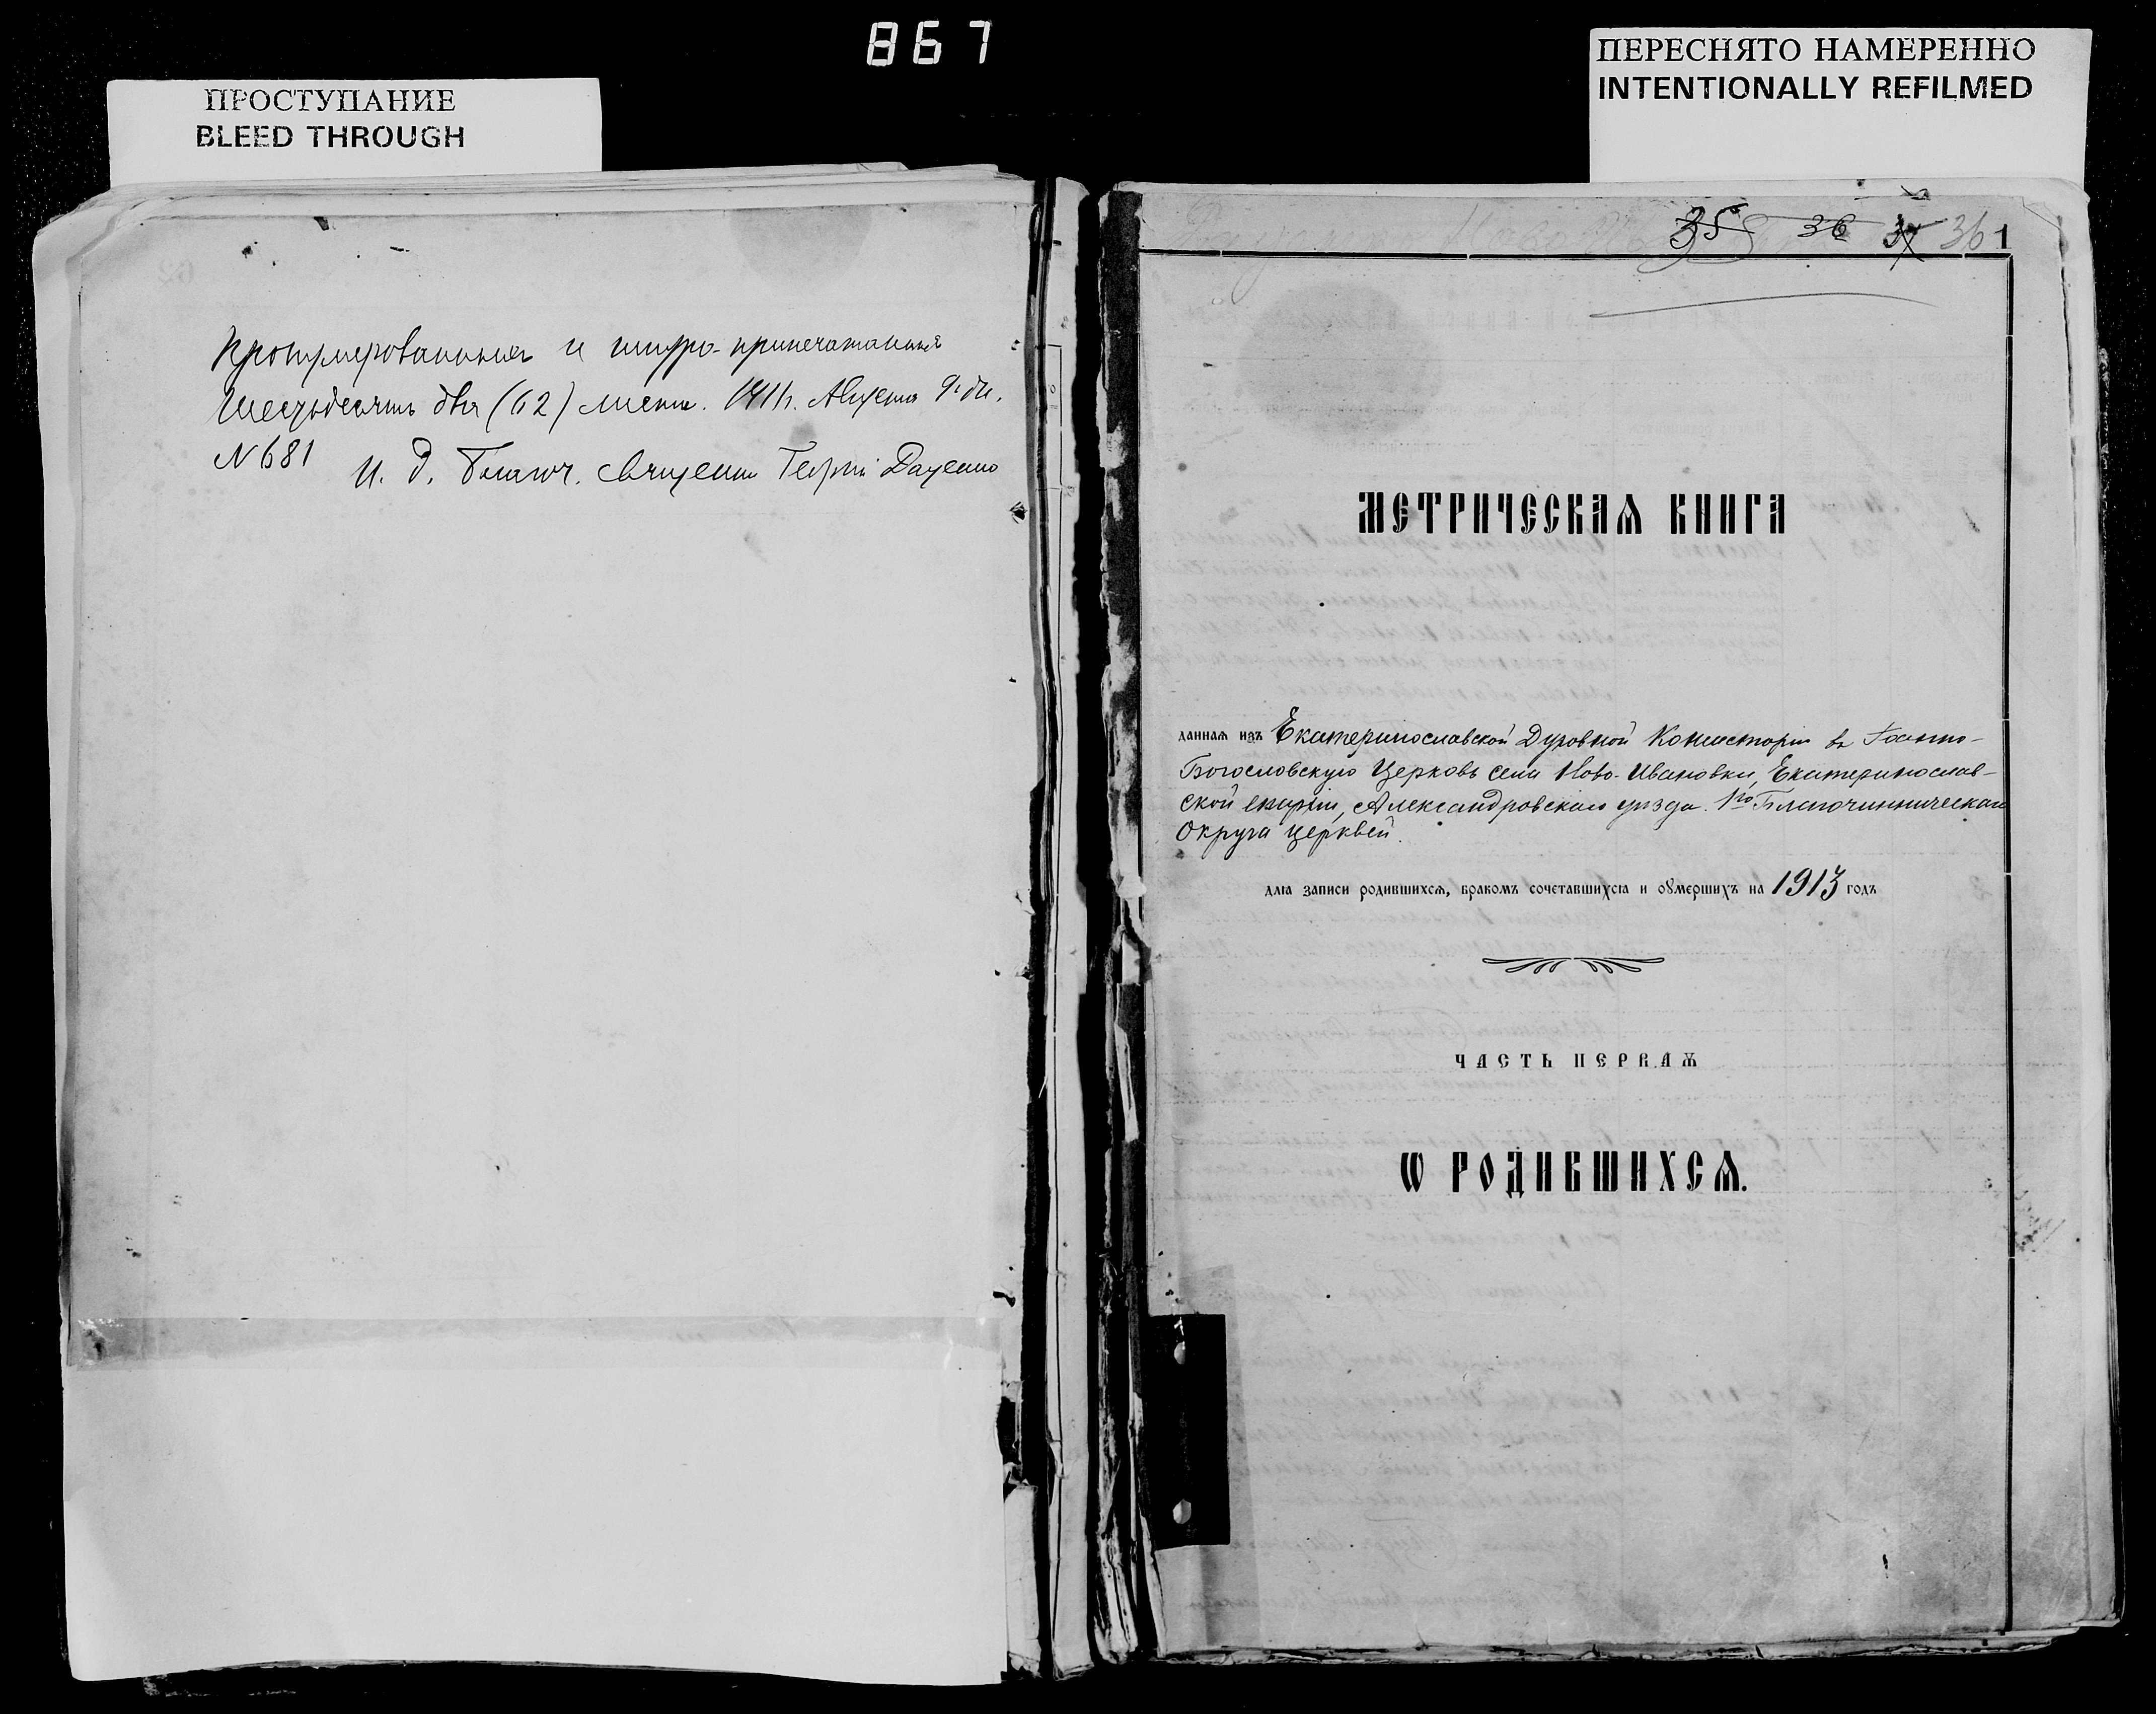 867
ПРОСТУПАНИЕ
BLEED THROUGH
ПЕРЕСНЯТО НАМЕРЕННО
INTENTIONALLY REFILMED
и шнуро-припечатанныя
Шестьдесятъ два (62) листа. 1911 г. Августа 9 дн.
№ 681 И. д. Благоч. Священ. Георгій Даценко
35 36 37 36 1
МЕТРИЧЕСКАѦ КНИГА
даннаѧ изъ Екатеринославской Духовной Консисторіи въ Іоанно-
Богословскую Церковь села Ново-Ивановки, Екатеринослав-
ской епархіи, Александровскаго уѣзда. 1го Благочинническаго
Округа церквей.
длꙗ записи родившихсѧ, бракомъ сочетавшихсꙗ и оумершихъ на 1913 годъ
ЧАСТЬ ПЕРВАѦ
Ѡ РОДИВШИХСѦ.